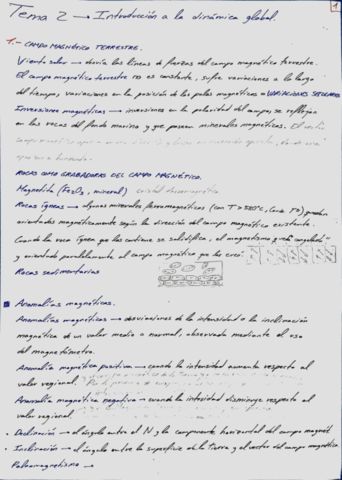 1
Tema 2 → Introducción a la dinámica global.
1.- CAMPO MAGNÉTICO TERRESTRE.
Viento solar → desvía las líneas de fuerzas del campo magnético terrestre.
El campo magnético terrestre no es constante, sufre variaciones a lo largo
del tiempo, variaciones en la posición de los polos magnéticos = VARIACIONES SECULARES
Inversiones magnéticas → inversiones en la polaridad del campo, se reflejan
en las rocas del fondo marino y que poseen minerales magnéticos. El
ROCAS COMO GRABADORAS DEL CAMPO MAGNÉTICO.
Magnetita (Fe₂O₃, mineral) cristal
Rocas ígneas → algunos minerales ferromagnéticos (con T > 585°C, ) pueden
orientados magnéticamente según la dirección del campo magnético existente.
Cuando la roca ígnea que los contiene se solidifica, el magnetismo queda "congelado"
y orientado paralelamente al campo magnético que los creó.
Rocas sedimentarias
Anomalías magnéticas.
Anomalías magnéticas → desviaciones de la intensidad o la inclinación
magnética de un valor medio o normal, observada mediante el uso
del magnetómetro.
Anomalía magnética positiva → cuando la intensidad aumenta respecto al
valor regional.
Anomalía magnética negativa → cuando la intensidad disminuye respecto al
valor regional.
• Declinación → el ángulo entre el N y la componente horizontal del campo magnét
• Inclinación → el ángulo entre la superficie de la tierra y el vector del campo magnétic
Paleomagnetismo →